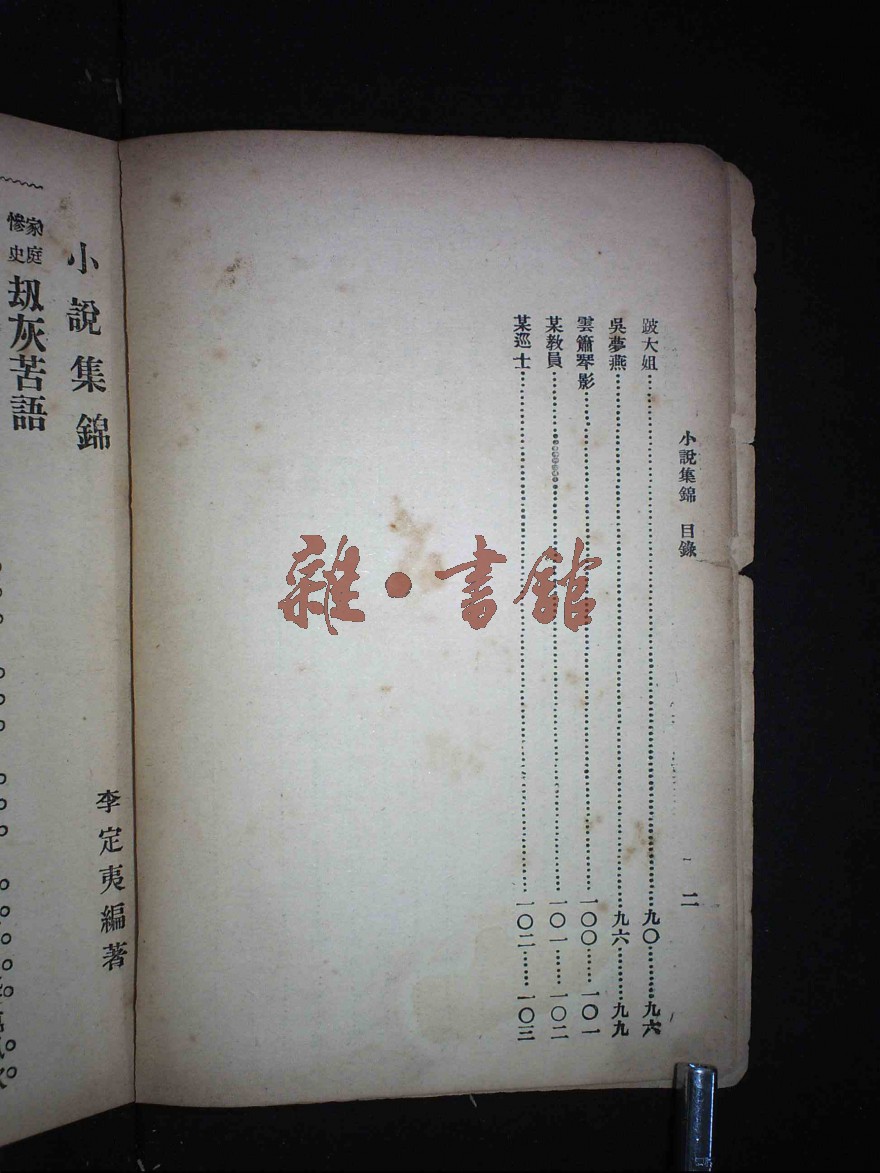 小說集錦　目錄
二
跛大姐……九〇……九六
吳夢燕……九六……九九
雲簫琴影……一〇〇……一〇一
某教員……一〇一……一〇二
某巡士……一〇二……一〇三
雜•書館
李定夷編著
小說集錦
家庭慘史
刼灰苦語